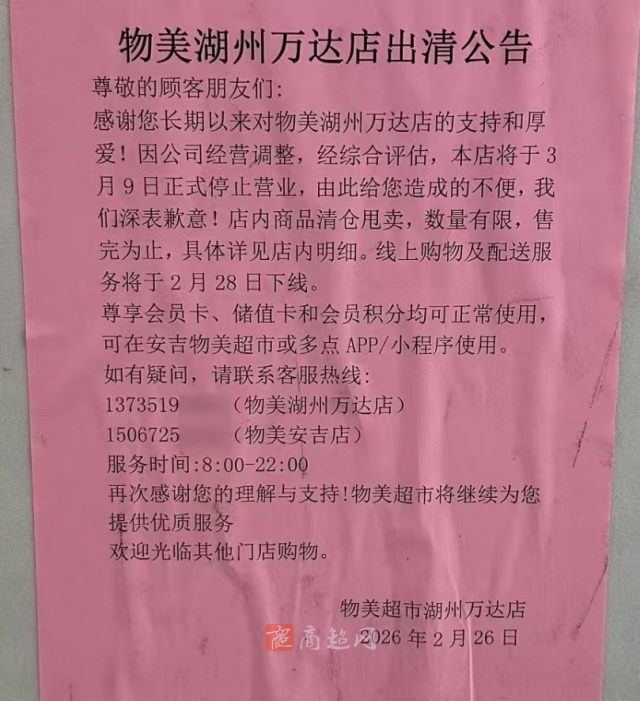 物美湖州万达店出清公告
尊敬的顾客朋友们:
感谢您长期以来对物美湖州万达店的支持和厚
爱！因公司经营调整，经综合评估，本店将于3
月9日正式停止营业，由此给您造成的不便，我
们深表歉意！店内商品清仓甩卖，数量有限，售
完为止，具体详见店内明细。线上购物及配送服
务将于2月28日下线。
尊享会员卡、储值卡和会员积分均可正常使用，
可在安吉物美超市或多点APP/小程序使用。
如有疑问，请联系客服热线:
1373519 （物美湖州万达店）
1506725 （物美安吉店）
服务时间:8:00-22:00
再次感谢您的理解与支持!物美超市将继续为您
提供优质服务
欢迎光临其他门店购物。
物美超市湖州万达店
商超网
2026年2月26日